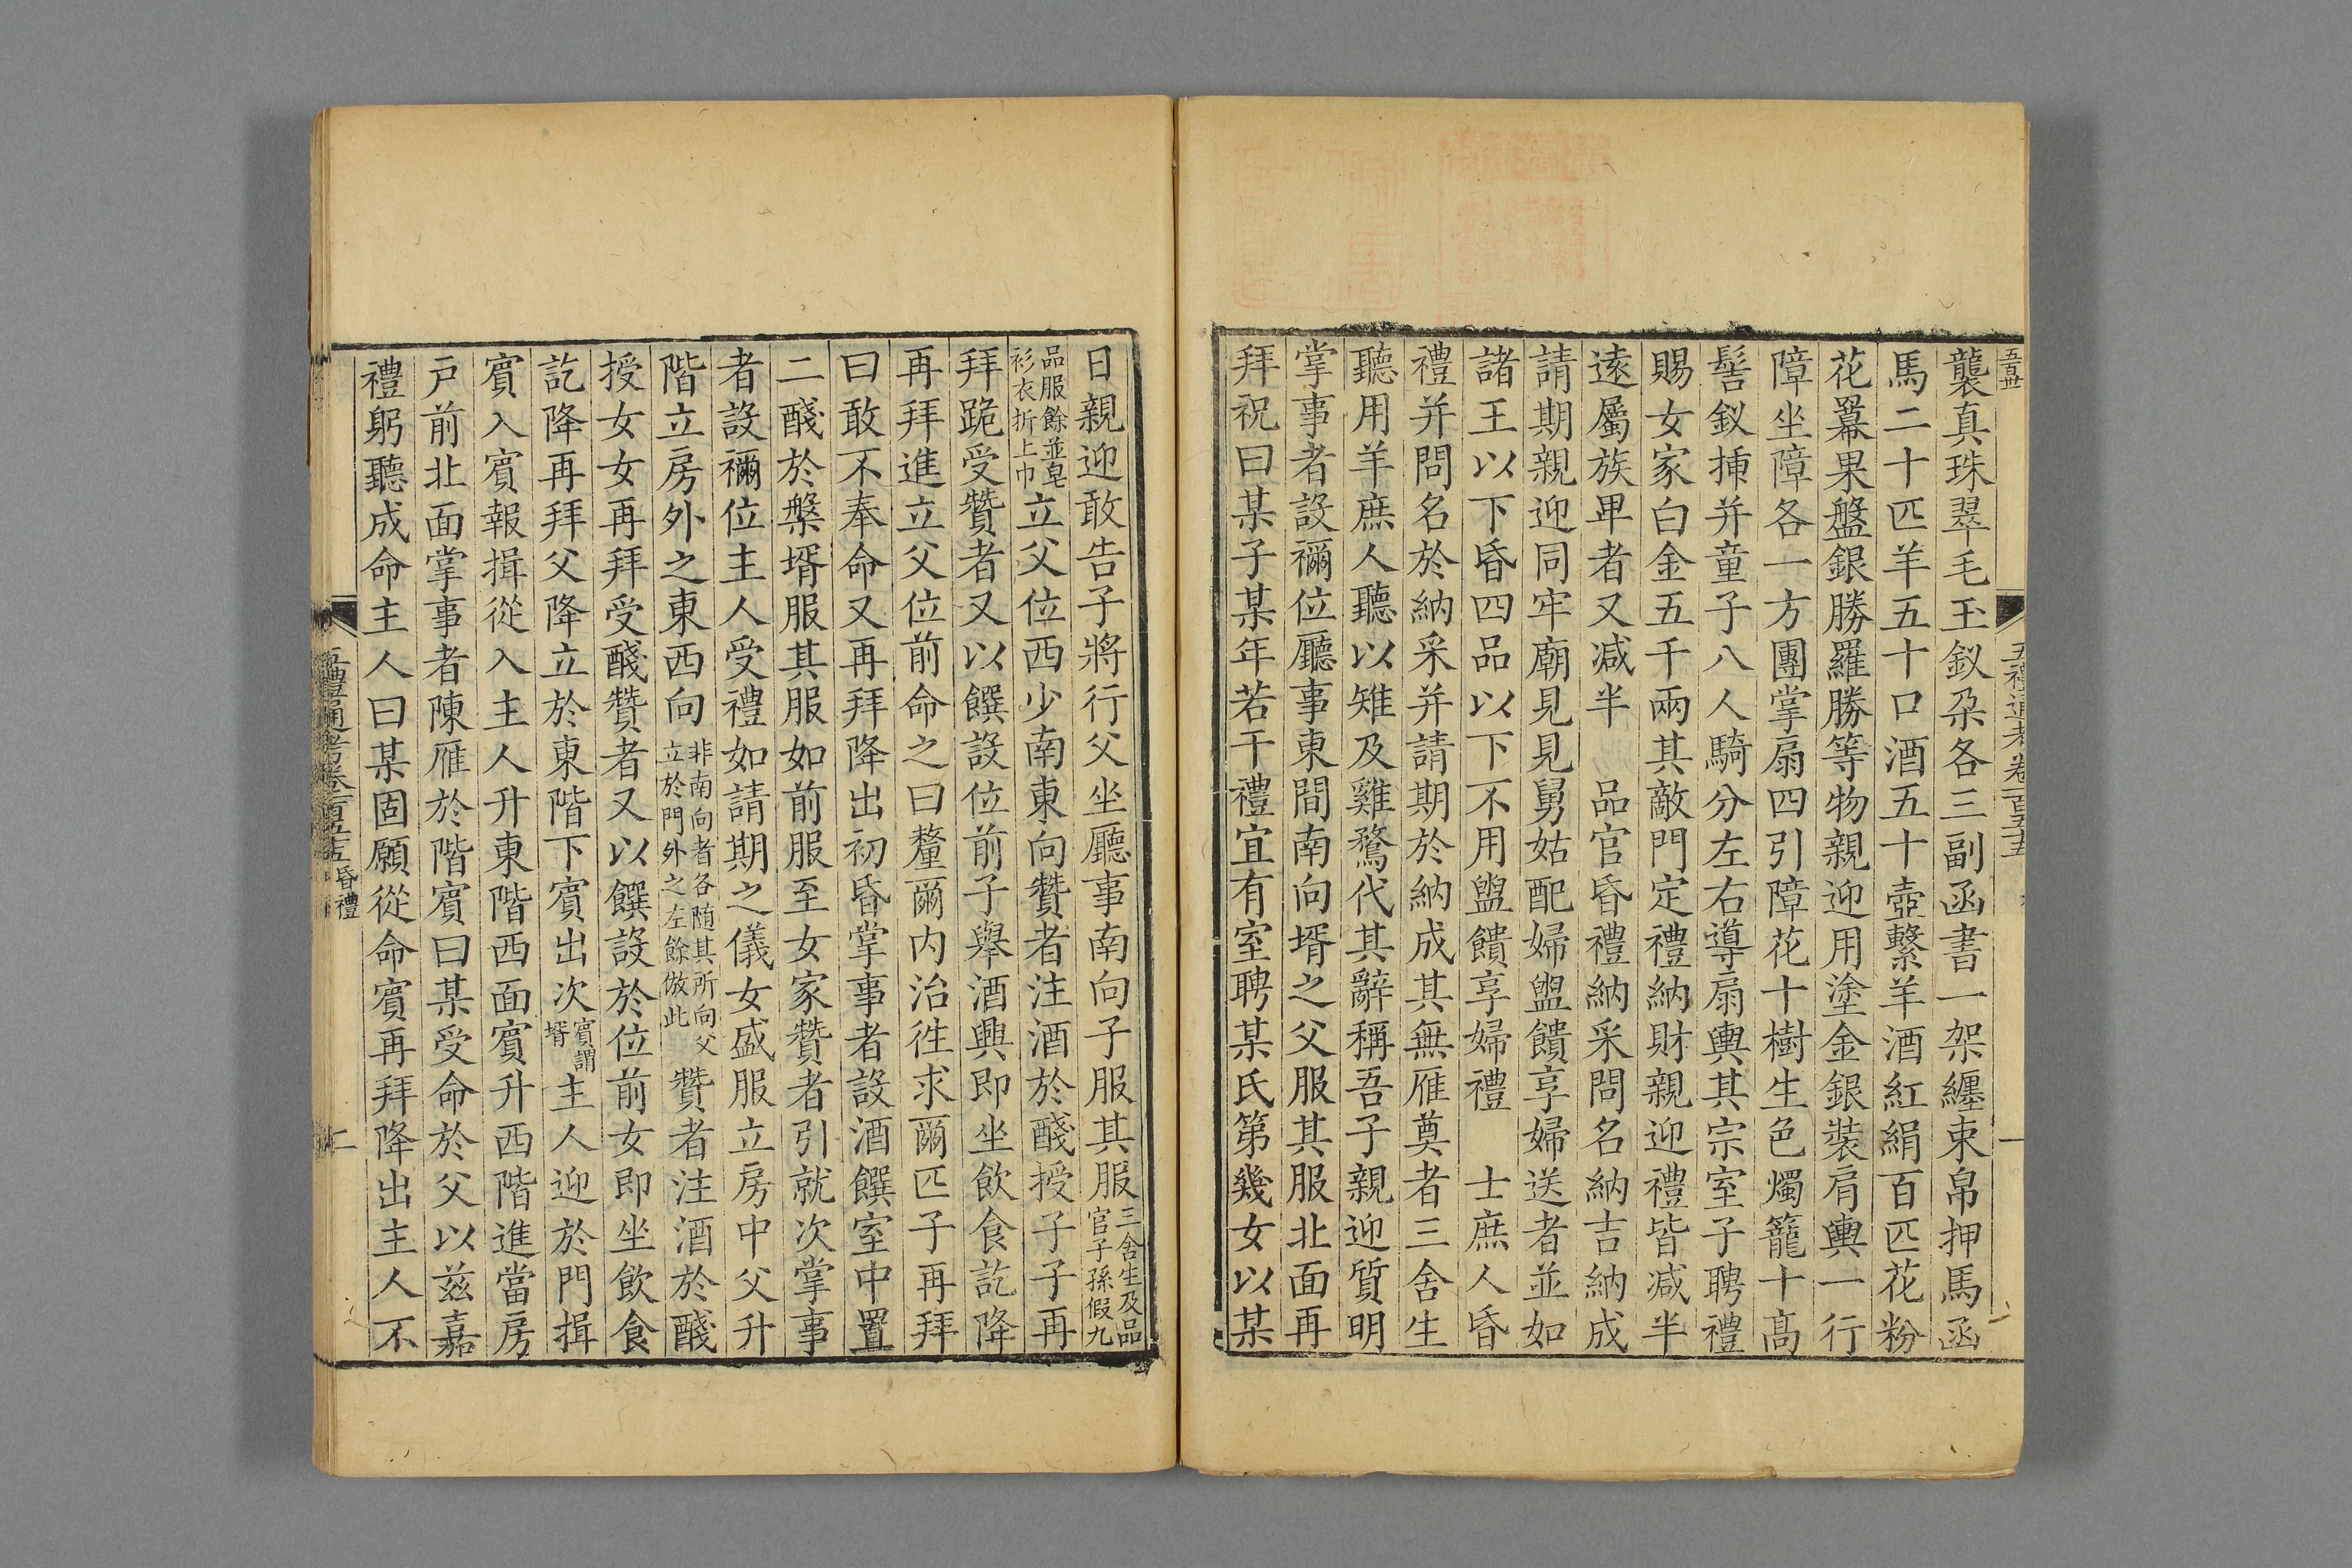 五百卅
五禮通考卷一百五十五
一
襲真珠翠毛玉釵朶各三副函書一架纒束帛押馬函
馬二十匹羊五十口酒五十壺繫羊酒紅絹百匹花粉
花羃果盤銀勝羅勝等物親迎用塗金銀裝肩輿一行
障坐障各一方團掌扇四引障花十樹生色燭籠十髙
髻釵插并童子八人騎分左右導扇輿其宗室子聘禮
賜女家白金五千兩其敵門定禮納財親迎禮皆减半
逺屬族卑者又减半　品官昏禮納采問名納吉納成
請期親迎同牢廟見見舅姑配婦盥饋享婦送者並如
諸王以下昏四品以下不用盥饋享婦禮　士庶人昏
禮并問名於納采并請期於納成其無雁奠者三舍生
聽用羊庶人聽以雉及雞鶩代其辭稱吾子親迎質明
掌事者設禰位廳事東間南向壻之父服其服北面再
拜祝曰某子某年若干禮宜有室聘某氏第幾女以某
日親迎敢告子將行父坐廳事南向子服其服三舍生及品官子孫假九
品服餘並皂衫衣折上巾立父位西少南東向贊者注酒於醆授子子再
拜跪受贊者又以饌設位前子舉酒興即坐飲食訖降
再拜進立父位前命之曰釐爾内治徃求爾匹子再拜
曰敢不奉命又再拜降出初昏掌事者設酒饌室中置
二醆於槃壻服其服如前服至女家贊者引就次掌事
者設禰位主人受禮如請期之儀女盛服立房中父升
階立房外之東西向非南向者各随其所向父立於門外之左餘倣此贊者注酒於醆
授女女再拜受醆贊者又以饌設於位前女即坐飲食
訖降再拜父降立於東階下賓出次賓謂壻主人迎於門揖
賓入賓報揖從入主人升東階西面賓升西階進當房
戸前北面掌事者陳雁於階賓曰某受命於父以兹嘉
禮躬聽成命主人曰某固願從命賓再拜降出主人不
五禮通考卷一百五十五 昏禮
二